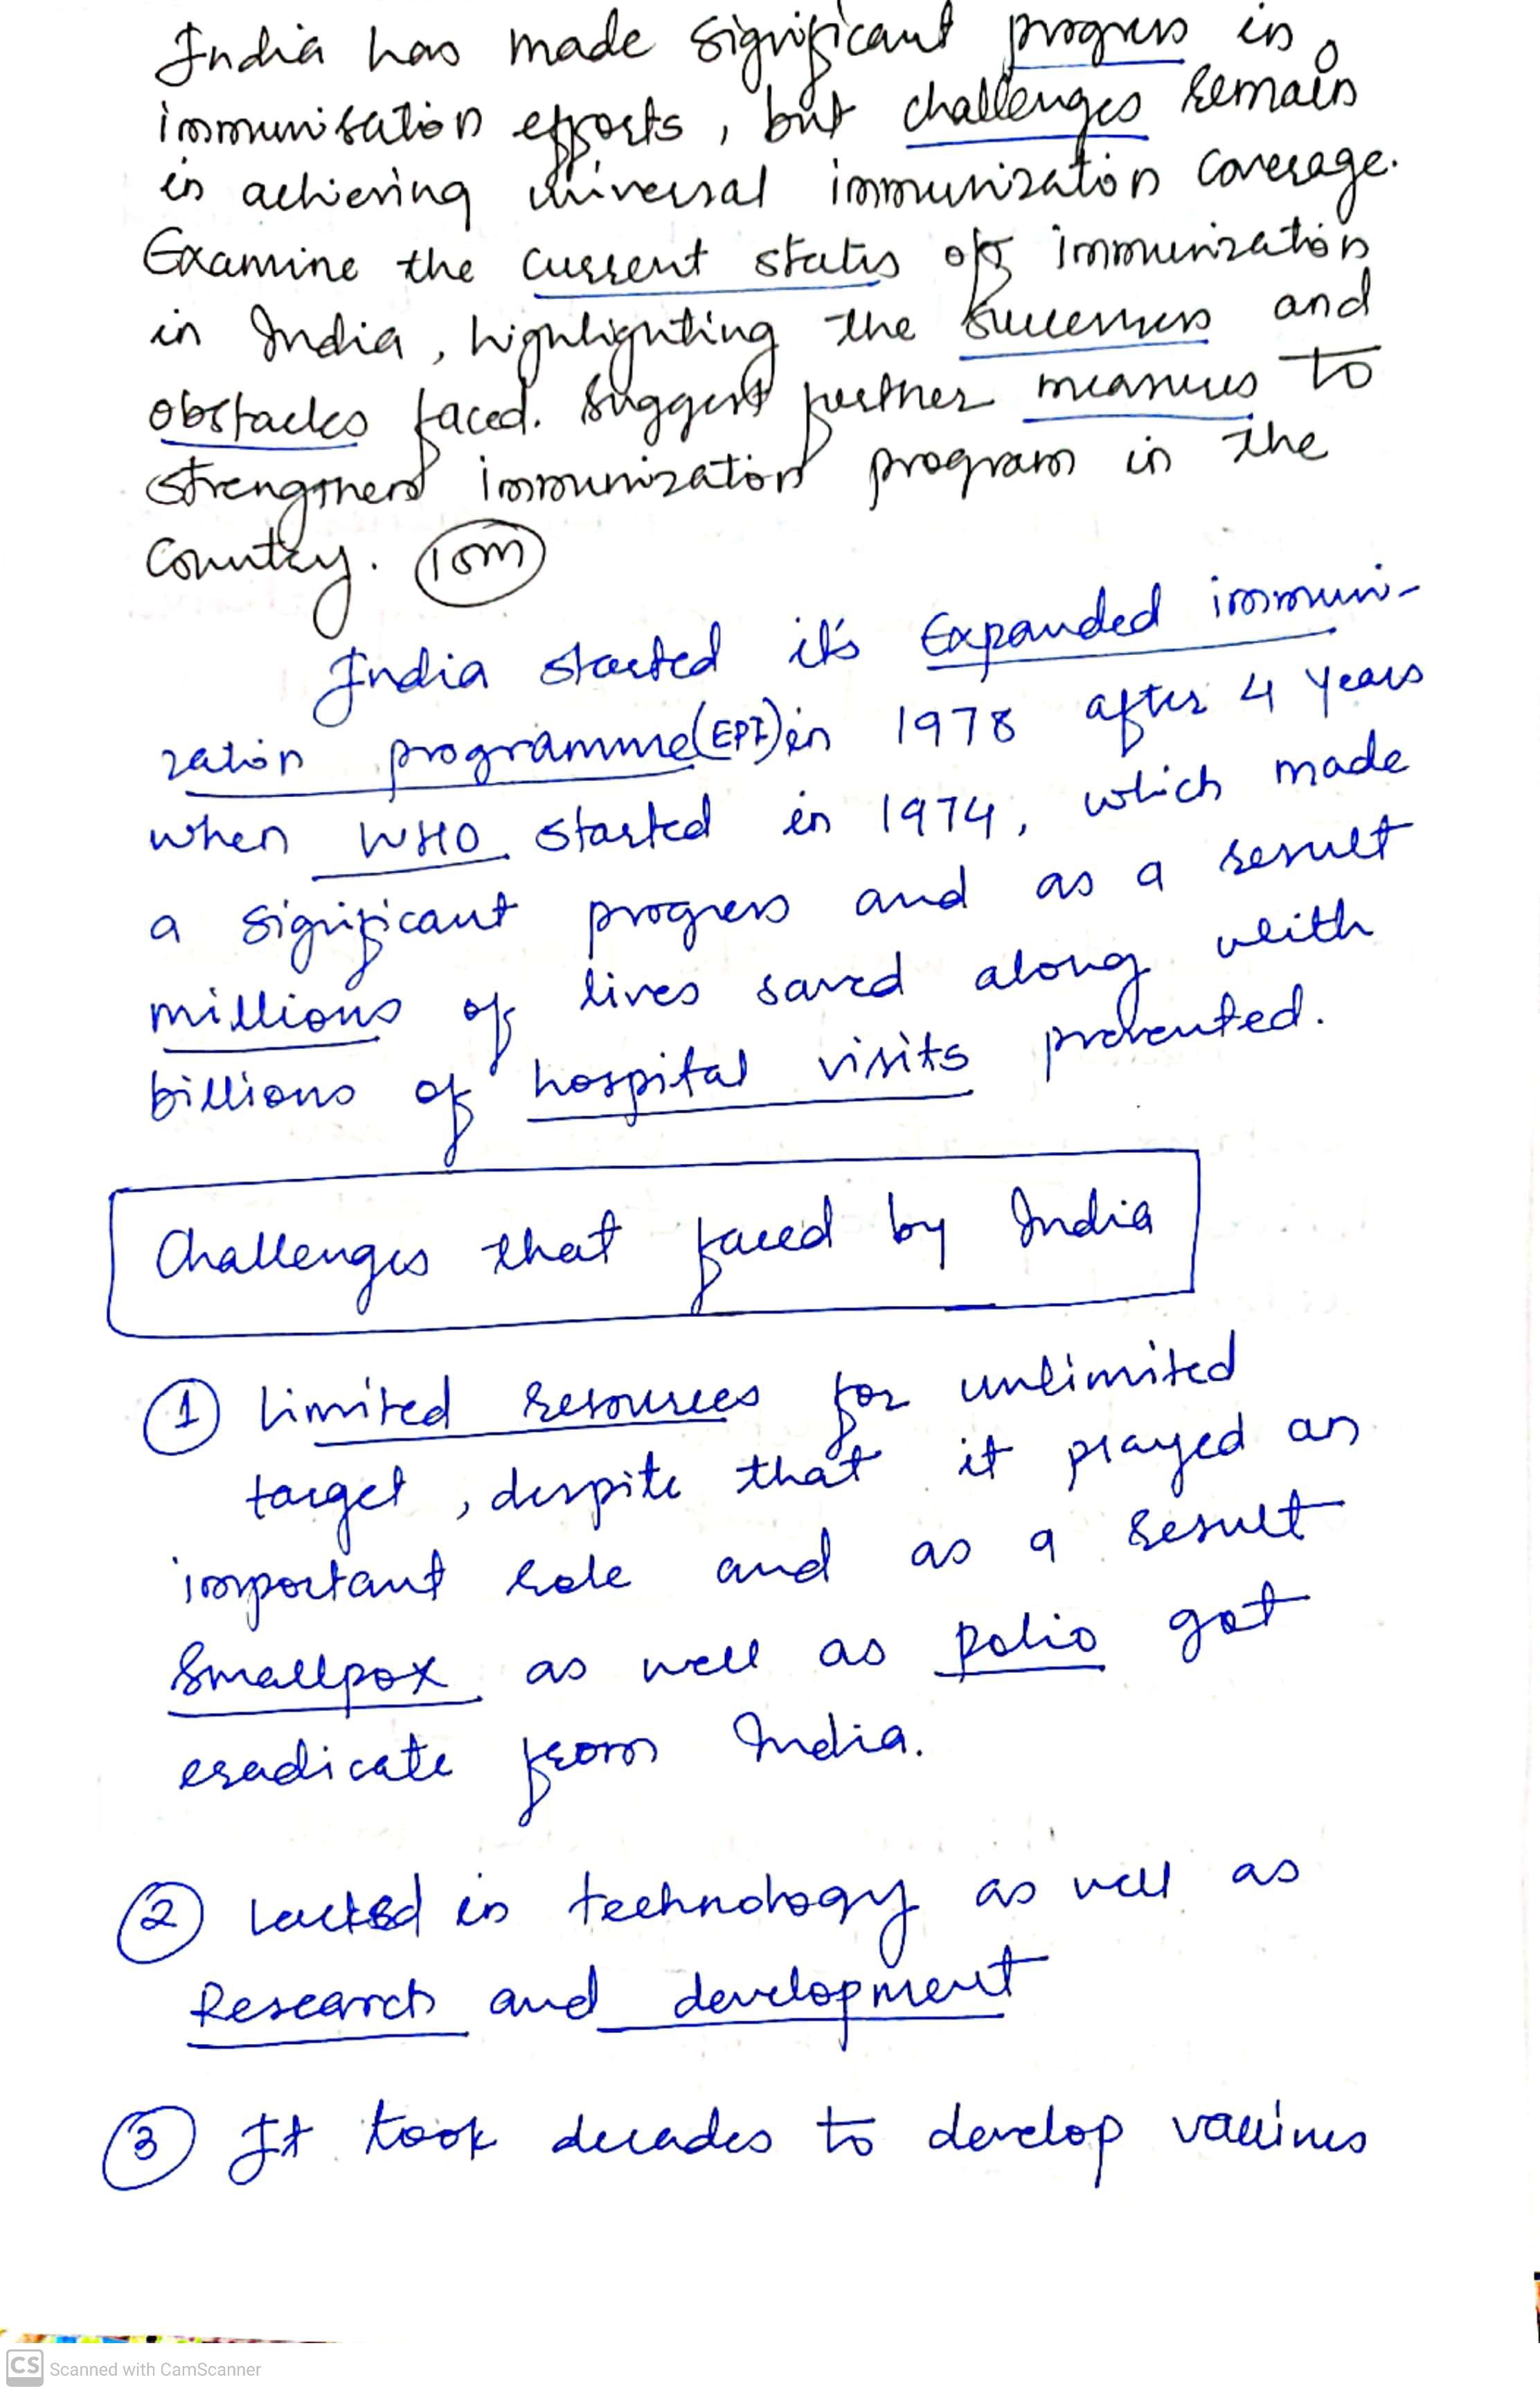 India has made significant progress in
immunisation efforts, but challenges remain
in achieving universal immunization coverage.
Examine the current status of immunization
in India, highlighting the successes and
obstacles faced. Suggest further measures to
strengthen immunization program in the
country. 10m
India started it's Expanded immuni-
zation programme (EPI) in 1978 after 4 years
when WHO started in 1974, which made
a significant progress and as a result
millions of lives saved along with
billions of hospital visits prevented.
Challenges that faced by India
1 Limited resources for unlimited
target, despite that it played an
important role and as a result
Smallpox as well as polio got
eradicate from India.
2 Lacked in technology as well as
Research and development
3 It took decades to develop vaccines
CS Scanned with CamScanner